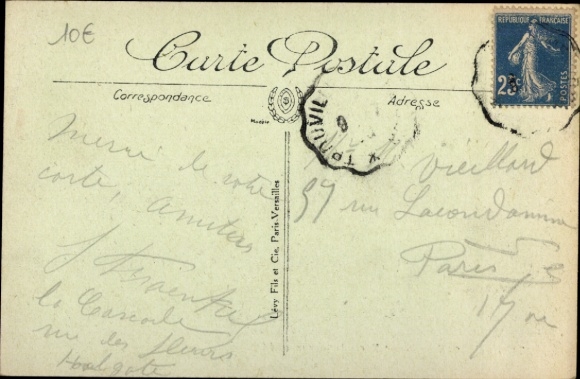 10€
Carte Postale
Correspondance
Adresse
REPUBLIQUE FRANÇAISE
25c
POSTES
TROUVILLE
Merci de votre
carte, Amitiés
la Cascade
rue des fleurs
Houlgate
Lévy Fils et Cie, Paris-Versailles
Vieillard
rue Lacondamine
Paris
17